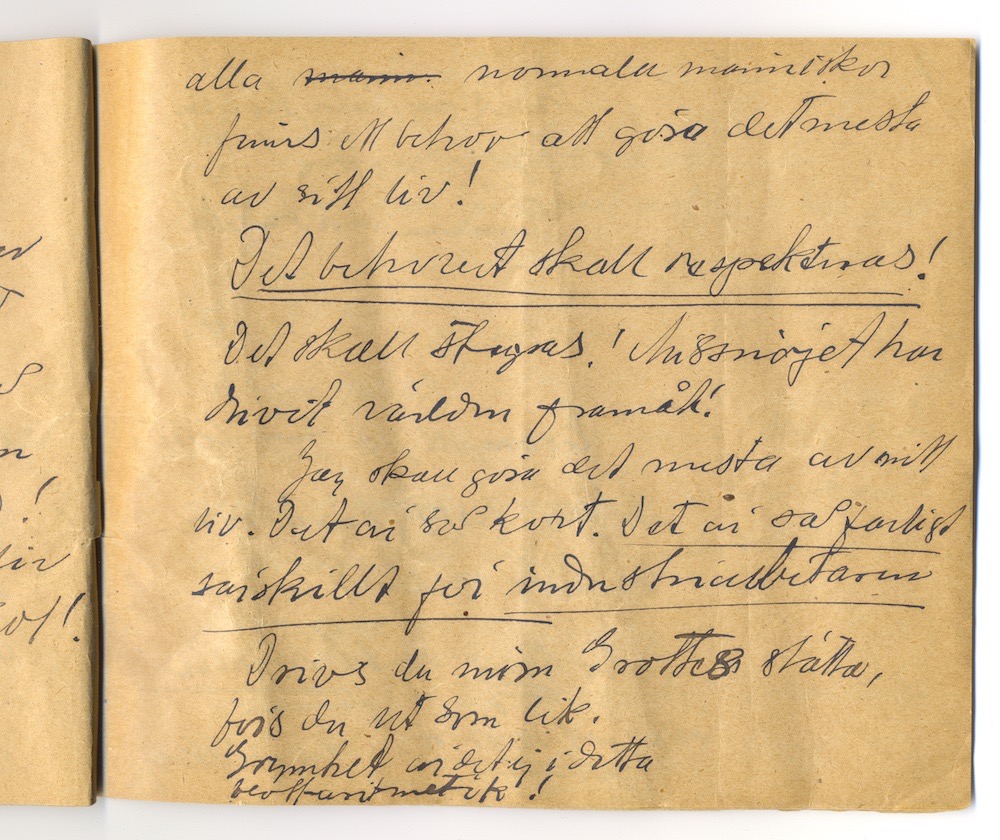 alla männ. normala människor
finns ett behov att göra det mesta
av sitt liv!
Det behovet skall respekteras!
Det skall stegras! Missnöjet har
drivit världen framåt!
Jag skall göra det mesta av mitt
liv. Det är så kort. Det är så farligt
särskilt för industriarbetaren
Drivs du inom Grottes slåtta,
förs du ut som lik.
Grymhet är det ej i detta